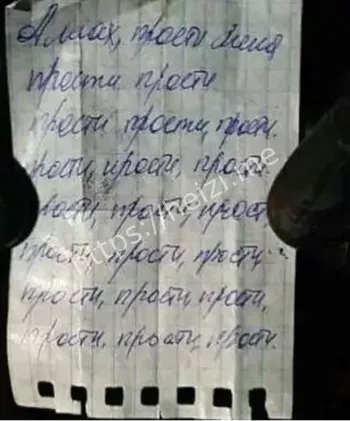 Аллах, прости меня
прости прости
прости прости, прости.
прости, прости, прости.
прости, прости, прости,
прости, прости, прости,
прости, прости, прости,
прости, прости, прости.
https://meizi.me